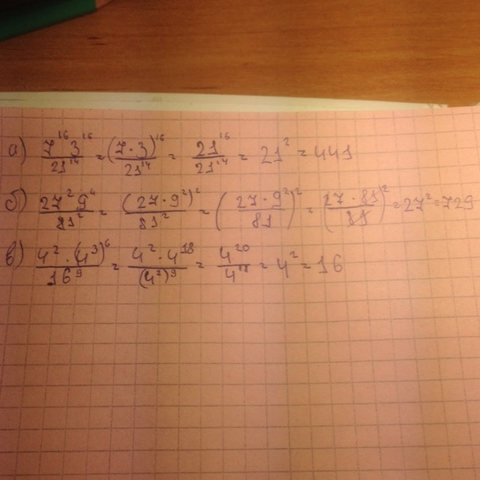 а) 7¹⁶3¹⁶/21¹⁴ = (7·3)¹⁶/21¹⁴ = 21¹⁶/21¹⁴ = 21² = 441
б) 27²9⁴/81² = (27·9²)²/81² = (27·9²/81)² = (27·81/81)² = 27² = 729
в) 4²·(4³)⁶/16⁹ = 4²·4¹⁸/(4²)⁹ = 4²⁰/4¹⁸ = 4² = 16